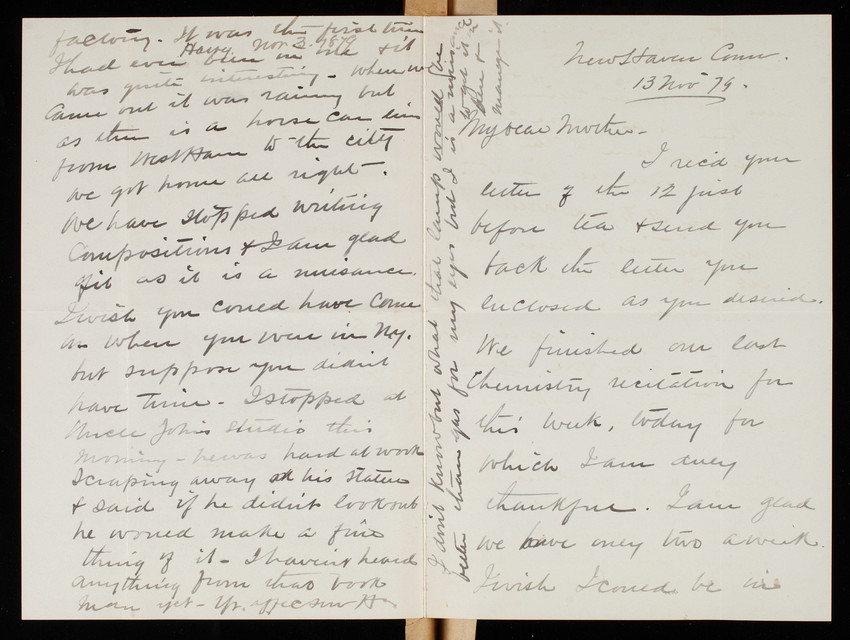 New Haven Conn.
13 Nov 79.
My dear Mother -
I rec'd your
letter of the 12 just
before tea & send you
back the letter you
enclosed as you desired.
We finished our last
Chemistry recitation for
this week, today for
which I am very
thankful. I am glad
we have only two a week.
I wish I could be in
factory. It was the first time
I had ever been in one & it
was quite interesting - when we
came out it was raining but
as there is a horse car line
from West Haven to the city
we got home all right -
We have stopped writing
Compositions & I am glad
of it as it is a nuisance.
I wish you could have come
on when you were in N.Y.
but suppose you didn't
have time - I stopped at
Uncle John's studio this
morning - he was hard at work
scraping away at his statue
& said if he didn't lookout
he would make a fine
thing of it - I haven't heard
anything from that book
man yet - Yr. affec son
I don't know but what that lamp would be
better than gas for my eyes but it is a nuisance
to get it
manage it.
Nov 3. 1879